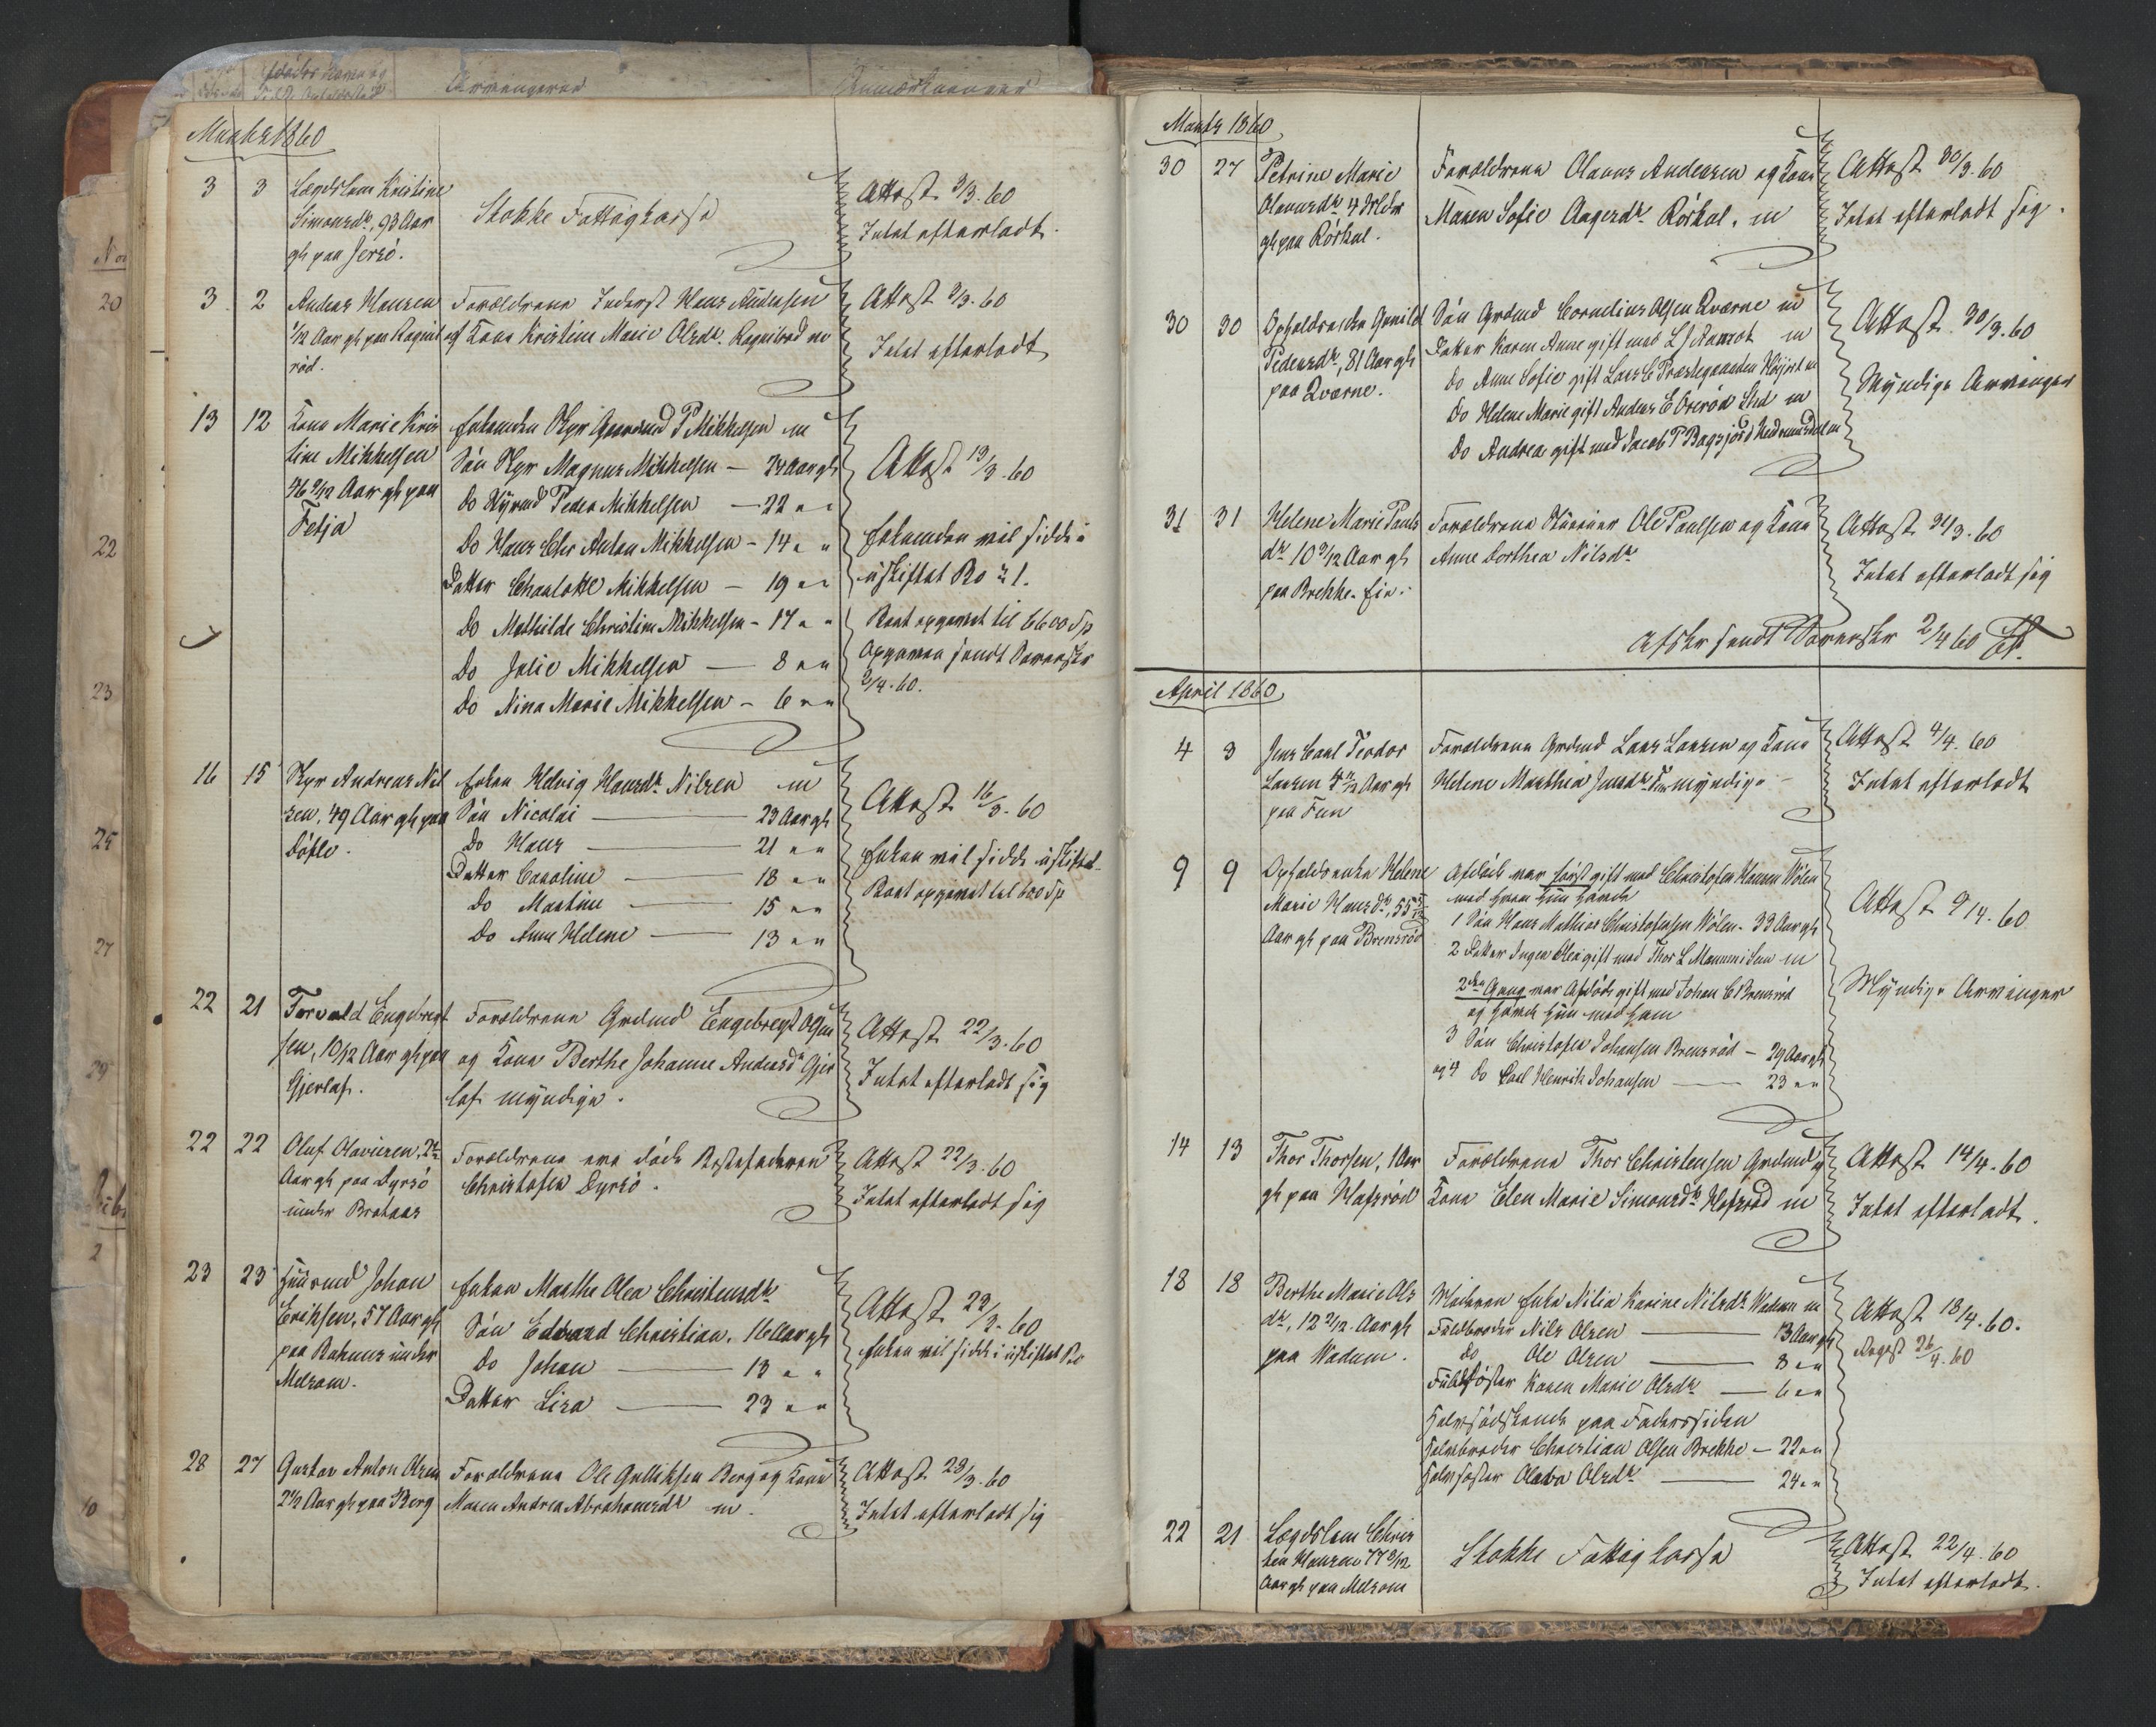 Arvingerne
Anmærkninger
Marts 1860
3 3 Lægdslem Kristine
Simonsdr, 93 Aar
gl paa Jersø.
Stokke Fattigkasse
Attest 3/3. 60
Intet efterladt.
3 2 Anders Hansen
1/12 Aar gl paa Ragnhil
rød.
Forældrene Inderst Hans Andersen
og Kone Kristine Marie Olsdr. Ragnilrød m
Attest 3/3. 60
Intet efterladt
13 12 Kone Marie Kris
tine Mikkelsen
46 9/12 Aar gl paa
Tetja
Enkemden Skpr Gaardmd P Mikkelsen m
Søn Skpr Magnus Mikkelsen — 24 Aar gl
Do Styrmd Peder Mikkelsen — 22 " "
Do Hans Chr Anton Mikkelsen - 14 " "
Datter Charlotte Mikkelsen — 19 " "
Do Mathilde Christine Mikkelsen - 17 " "
Do Julie Mikkelsen — 8 " "
Do Nina Marie Mikkelsen - 6 " "
Attest 13/3. 60
Enkemden vil sidde i
uskiftet Bo
Boet opgivet til 6600 Sp
Opgaven sendt Sorensk
2/4. 60.
16 15 Skpr Andreas Nil
sen, 49 Aar gl paa
Døfle.
Enken Helvig Hansdr Nilsen m
Søn Nicolai — 23 Aar gl
Do Hans — 21 " "
Datter Caroline — 18 " "
Do Martine — 15 " "
Do Anne Helene — 13 " "
Attest 16/3. 60
Enken vil sidde uskiftet
Boet opgivet til 600 Sp
22 21 Torvald Engebregt
sen, 10/12 Aar gl paa
Gjerlaf.
Forældrene Grdmd Engebregt Olsen
og Kone Berthe Johanne Andersdr Gjer
laf. myndige.
Attest 22/3. 60
Intet efterladt sig
22 22 Oluf Olavesen, 2
Aar gl paa Dyrsø
under Brataas
Forældrene ere døde Bestefaderen
Christofer Dyrsø.
Attest 22/3. 60
Intet efterladt sig
23 23 Huusmd Johan
Eriksen, 57 Aar gl
paa Rahnus under
Melsom.
Enken Marthe Olea Christensdr
Søn Edvard Christian. 16 Aar gl
Do Johan — 13 " "
Datter Lisa — 23 " "
Attest 23/3. 60
Enken vil sidde i uskiftet Bo
28 27 Gustav Anton Olsen
2 1/2 Aar gl paa Berg
Forældrene Ole Gulliksen Berg og Kone
Maren Andrea Abrahamsdr m.
Attest 28/3. 60
Intet efterladt sig
Marts 1860
30 27 Petrine Marie
Olavesdr 4 Aar
gl paa Rørkol.
Forældrene Olaves Andersen og Kone
Maren Sofie Aagesdr Rørkol. m
Attest 30/3. 60
Intet efterladt sig.
30 30 Opholdsenke Gunild
Pedersdr, 81 Aar gl
paa Qværne.
Søn Grdmd Cornelius Olsen Qværne m
Datter Karen Anne gift med L J m
Do Anne Sofie gift Lars C Præstegaarden m
Do Helene Marie gift Anders E m
Do Andrea gift med Jacob P m
Attest 30/3. 60
Myndige Arvinger
31 31 Helene Marie Pauls
dr 10 9/12 Aar gl
paa Brekke. Eie.
Forældrene Ole Paulsen og Kone
Anne Dorthea Nilsdr
Attest 31/3. 60
Intet efterladt sig
Afskr sendt Sorensk 2/4 60
April 1860
4 3 Jens Carl Teodor
Larsen 4 Aar gl
paa Fen
Forældrene Grdmd Lars Larsen og Kone
Helene Mathea Jensdr Fen myndige
Attest 4/4. 60
Intet efterladt
9 9 Opholdsenke Helene
Marie Hansdr, 55
Aar gl paa Brensrød
Afdøde var først gift med Christofer Hansen Wølen
med hvem hun havde
1 Søn Hans Mathias Christofersen Wølen - 33 Aar gl
2 Datter Inger Olea gift med Thor L m
2den Gang var Afdøde gift med Johan C Brensrød
og havde hun med ham
3 Søn Christofer Johansen Brensrød — 29 Aar gl
og 4 Do Carl Henrik Johansen — 23 " "
Attest 9/4. 60
Myndige Arvinger
14 13 Thor Thorsen, 1 Aar
gl paa Hafsrød
Forældrene Thor Christensen Grdmd og
Kone Elen Marie Simonsdr Hafsrød m
Attest 14/4. 60
Intet efterladt.
18 18 Berthe Marie Ols
dr, 12 9/12 Aar gl
paa Wadum.
Moderen Enke Nilia Karine Nilsdr Wadum m
Fuldbroder Nils Olsen — 13 Aar gl
Do Ole Olsen — 8 " "
Fuldsøster Karen Marie Olsdr — 6 " "
Halvsødskende paa Faderssiden
Halvbroder Christian Olsen Brekke — 22 " "
Halvsøster Olava Olsdr — 24 " "
Attest 18/4. 60.
Regst 26/4. 60
22 21 Lægdslem Chris
ten Hansen 77 9/12
Aar gl paa Melsom
Stokke Fattigkasse
Attest 22/4. 60
Intet efterladt.